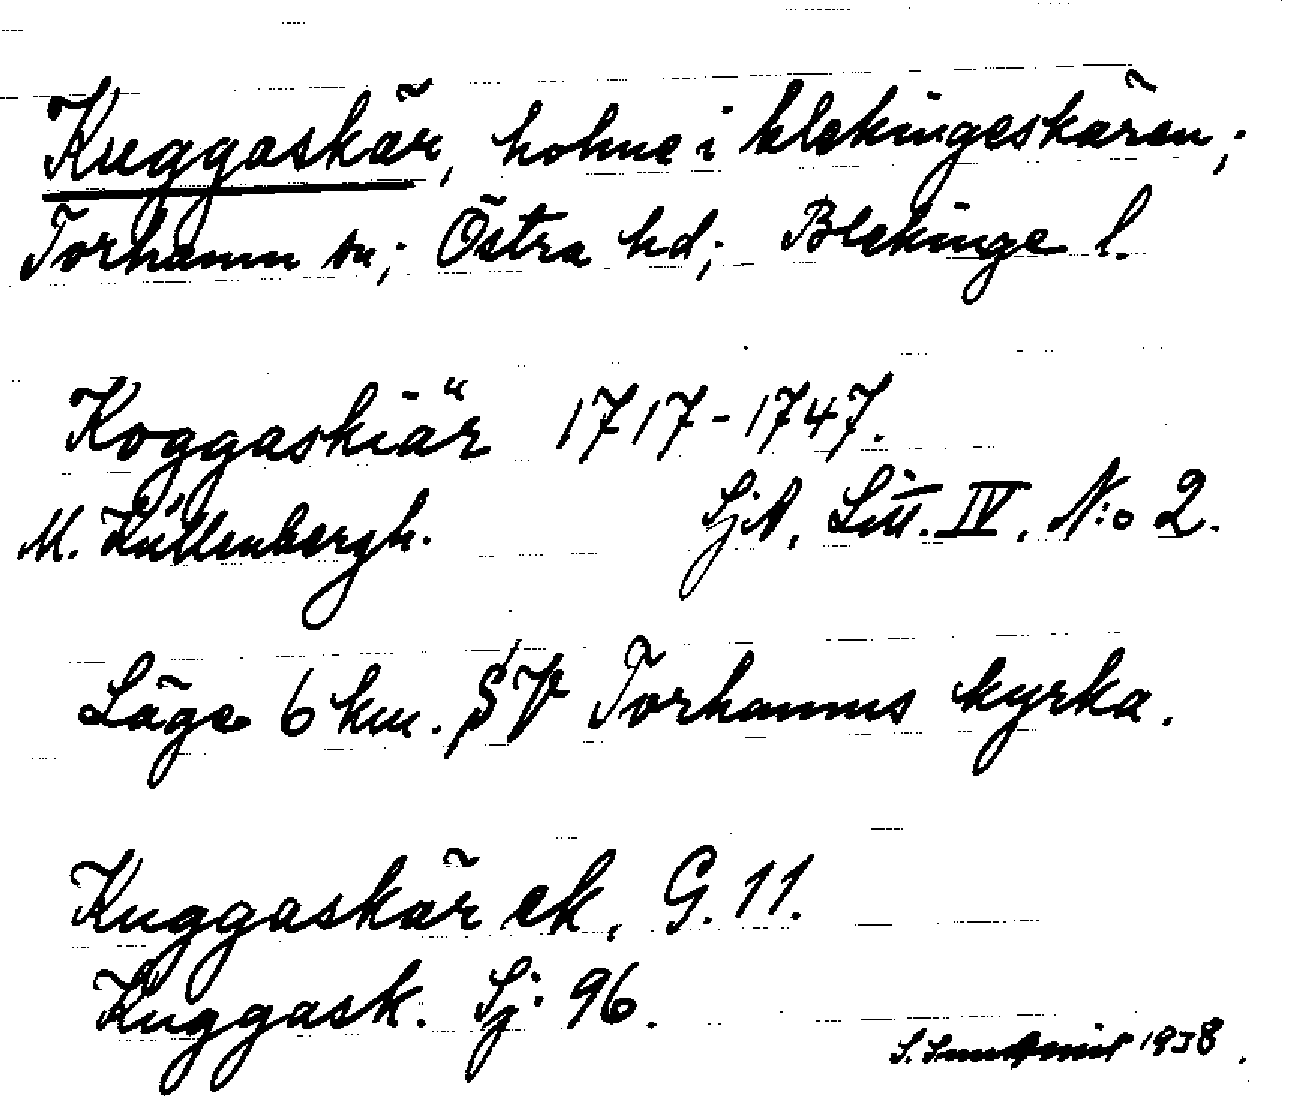 Kuggaskär, holme i blekingeskären;
Torhamn sn; Östra hd; Blekinge l.
Koggaskiär 1717-1747.
M. Küllenbergh. SjA, Litt. IV. N:o 2.
Läge 6 km. SV Torhamns kyrka.
Kuggaskär ek. G. 11.
Kuggask. Sj: 96.
S. 1938.